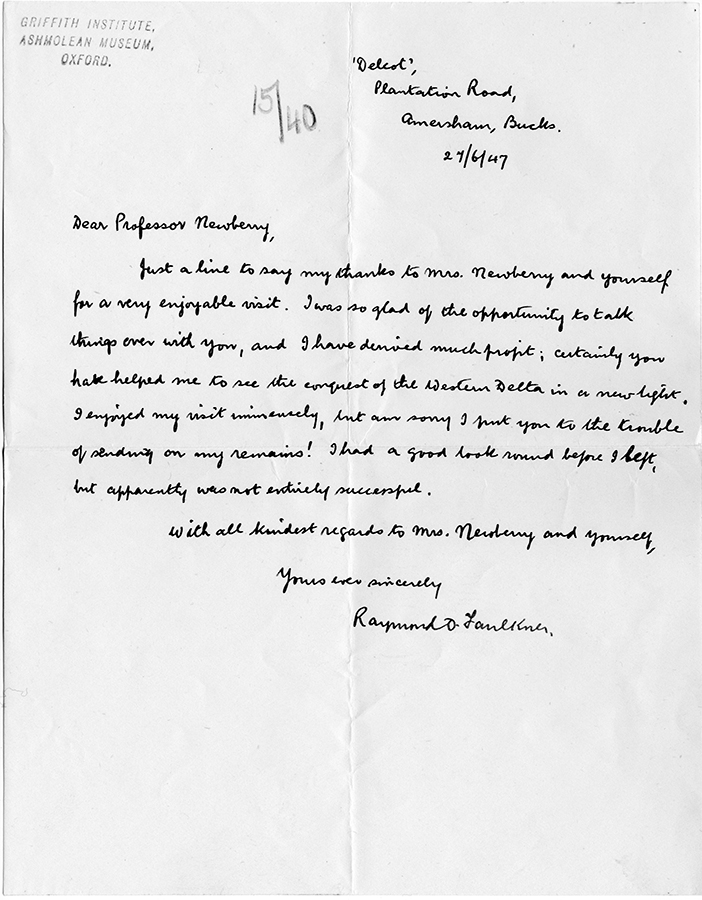 GRIFFITH INSTITUTE,
ASHMOLEAN MUSEUM,
OXFORD.
15/40
'Delcot',
Plantation Road,
Amersham, Bucks.
27/6/47
Dear Professor Newberry,
Just a line to say my thanks to Mrs. Newberry and yourself
for a very enjoyable visit. I was so glad of the opportunity to talk
things over with you, and I have derived much profit; certainly you
have helped me to see the conquest of the Western Delta in a new light.
I enjoyed my visit immensely, but am sorry I put you to the trouble
of sending on my remains! I had a good look round before I left,
but apparently was not entirely successful.
With all kindest regards to Mrs. Newberry and yourself,
Yours ever sincerely
Raymond O. Faulkner.